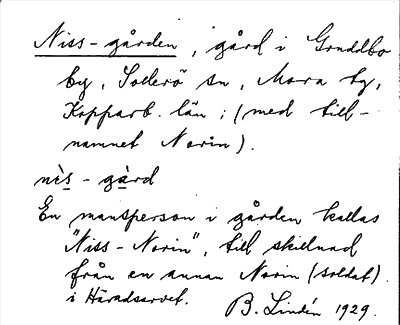 Niss-gården, gård i Gruddbo
by, Sollerö sn, Mora tg,
Kopparb. län; (med till-
namnet Norin).
nìs-gàrd
En mansperson i gården kallas
"Niss-Norin", till skillnad
från en annan Norin (soldat)
i Häradsarvet. B. Lindén 1929.